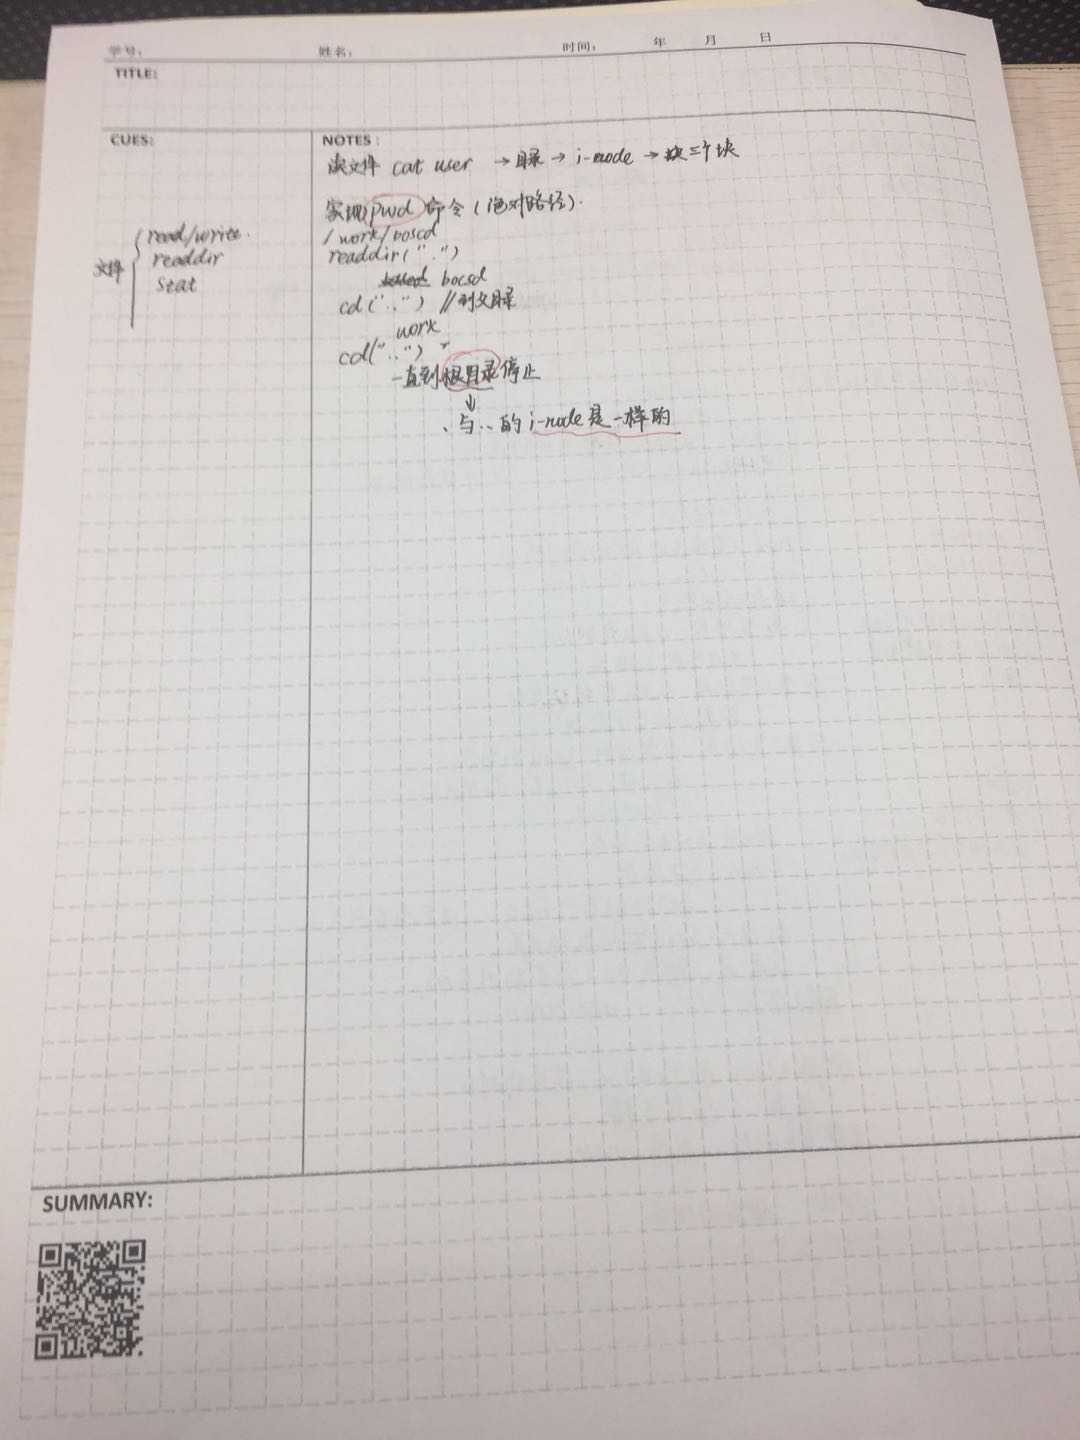 学号：　姓名：　时间：　年　月　日
TITLE:
CUES:
NOTES：
读文件 cat user → 目录 → i-node → 块三个块
实现 pwd 命令（绝对路径）.
/work/boscd
readdir(".")
bocsd
cd("..") //到父目录
work
cd("..")
一直到根目录停止
↓
.与..的i-node是一样的
文件
read/write.
readdir
stat
SUMMARY: